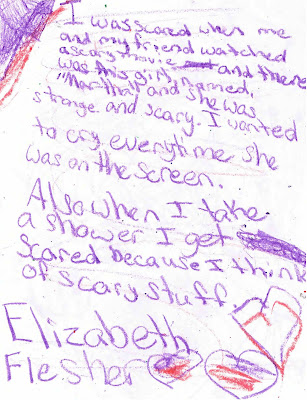 I was scared when me
and my friend watched
a scary movie and there
was this girl named,
"Martha" and she was
strange and scary. I wanted
to cry everytime she
was on the screen.
Also when I take
a shower I get
scared because I think
of scary stuff.
Elizabeth
Flesher